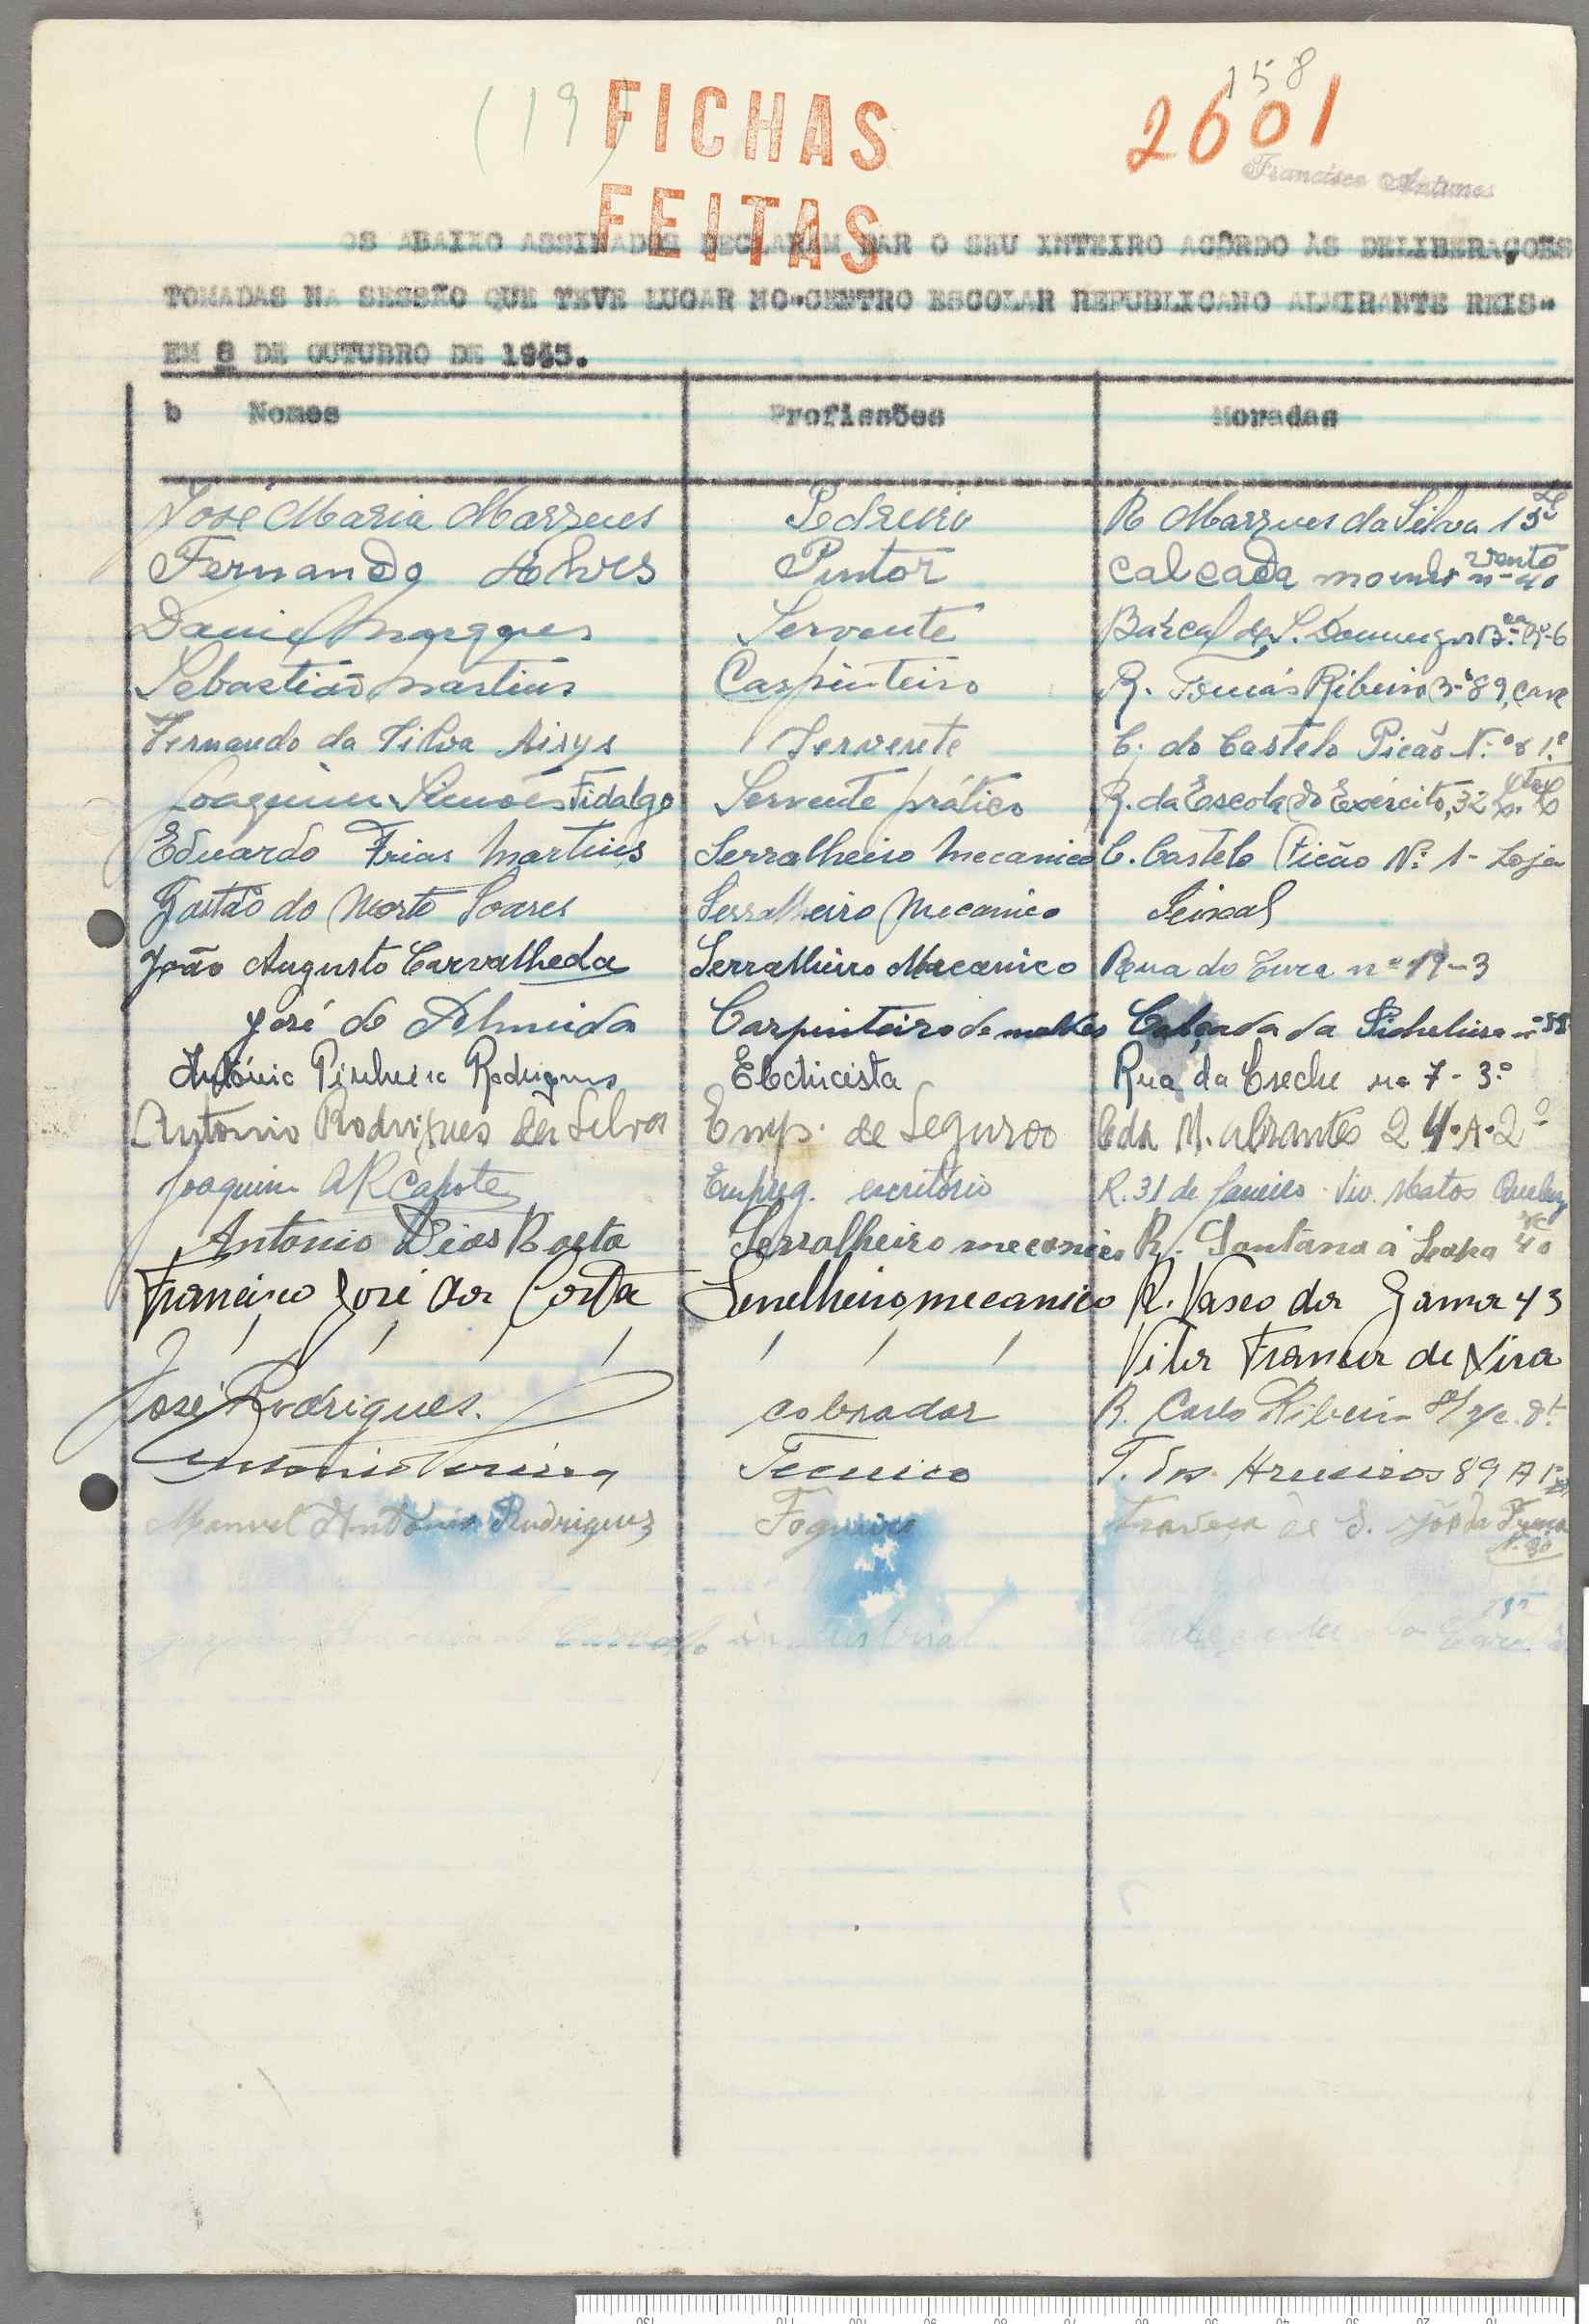 158
(19) FICHAS 2601
Francisco Antunes
FEITAS
OS ABAIXO ASSINADOS DECLARAM DAR O SEU INTEIRO ACÔRDO ÀS DELIBERAÇÕES
TOMADAS NA SESSÃO QUE TEVE LUGAR NO "CENTRO ESCOLAR REPUBLICANO ALMIRANTE REIS"
EM 8 DE OUTUBRO DE 1945.
b Nomes Profissões Moradas
José Maria Marques Pedreiro R Marques da Silva
Fernando Alves Pintor Calcada moinho vento nº 40
Daniel Marques Servente
Sebastião Martins Carpinteiro R. Tomás Ribeiro 89, cave
Fernando da Silva Servente C. do Castelo Picão
Joaquim Simões Fidalgo Servente prático R. da Escola do Exército, 32
Eduardo Frias Martins Serralheiro Mecanico C. Castelo Picão Nº 1 - Loja
Gastão do Norte Soares Serralheiro Mecanico Seixal
João Augusto Carvalheda Serralheiro Mecanico Rua do Cura nº 19-3
José de Almeida Carpinteiro de moldes Calçada da Picheleira
António Pinheiro Rodrigues Electricista Rua da Creche nº 7-3º
Antonio Rodrigues da Silva Emp. de Seguros Cda M. Abrantes 24-A-2º
Joaquim A R Capote Empreg. escritório R. 31 de Janeiro Viv. Matos Queluz
Antonio Dias Baeta Serralheiro mecanico R. Santana á Lapa
Francisco José da Costa Serralheiro mecanico R. Vasco da Gama 43
Vila Franca de Xira
José Rodrigues. cobrador R. Carlos Ribeiro
Antonio Tecnico T. dos Arneiros 89 A
Manuel António Rodrigues Fogueiro Travessa de S.
Carvalho industrial